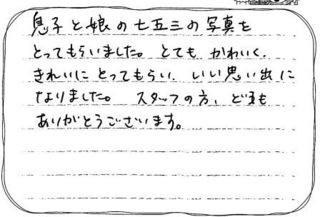 息子と娘の七五三の写真を
とってもらいました。とても かわいく、
きれいに とってもらい、いい思い出に
なりました。 スタッフの方、どうも
ありがとうございます。